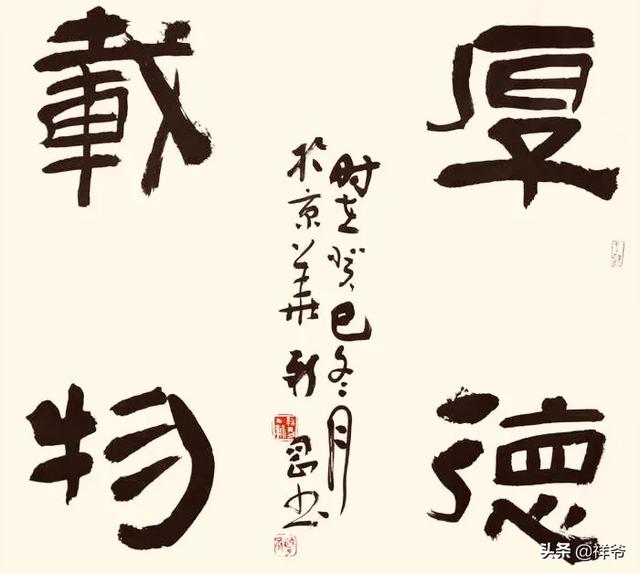 厚德
載物
时在癸巳冬月
於京華
书
头条 @祥爷